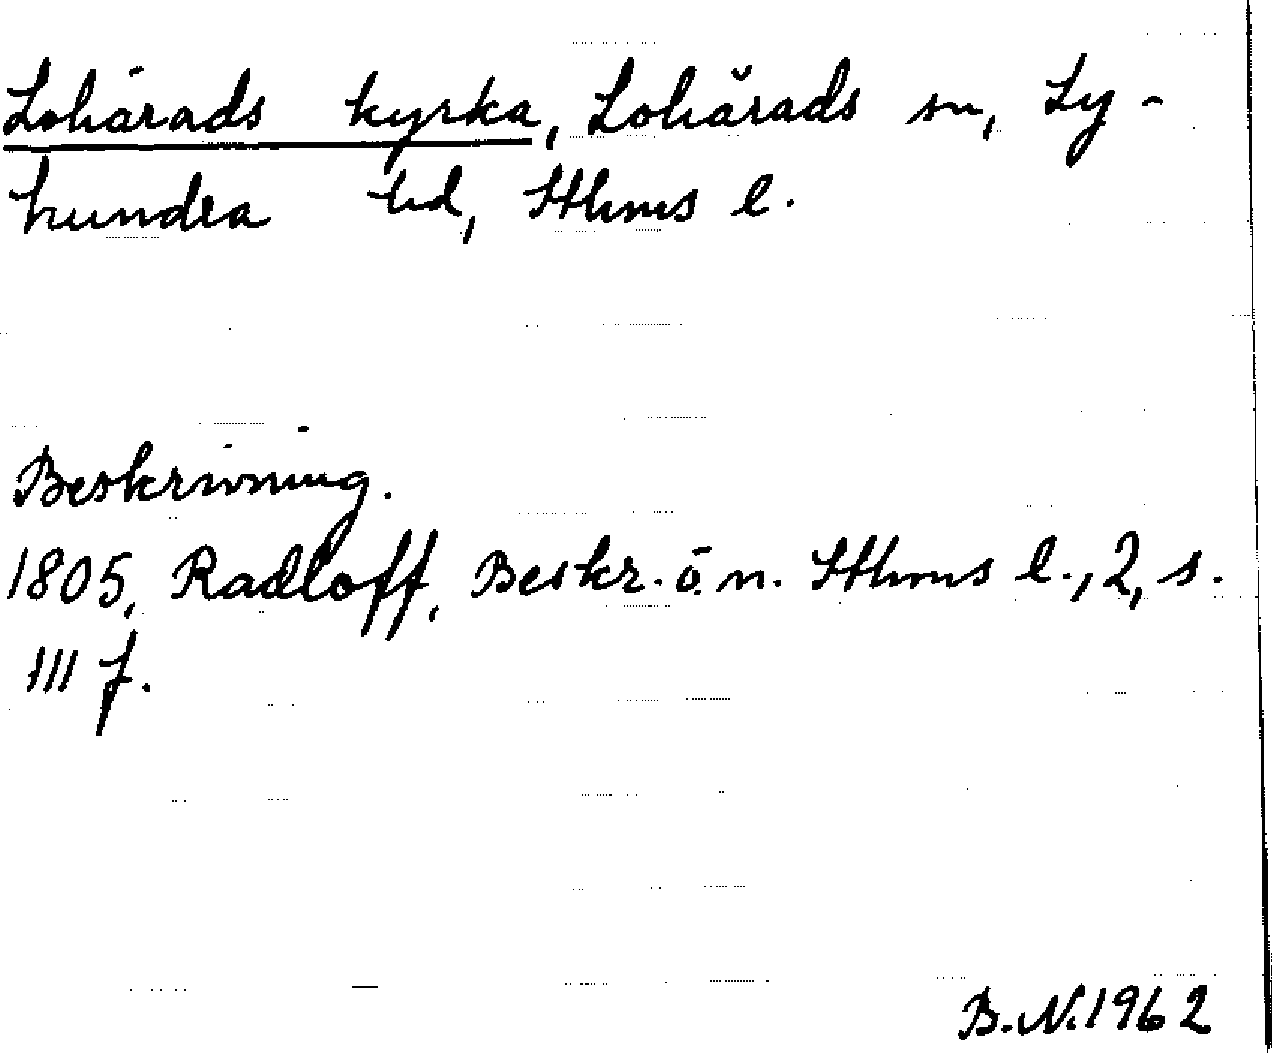 Lohärads kyrka, Lohärads sn, Ly-
hundra hd, Sthms l.
Beskrivning.
1805, Radloff, Beskr. ö. n. Sthms l., 2, s.
111 f.
B.N. 1962